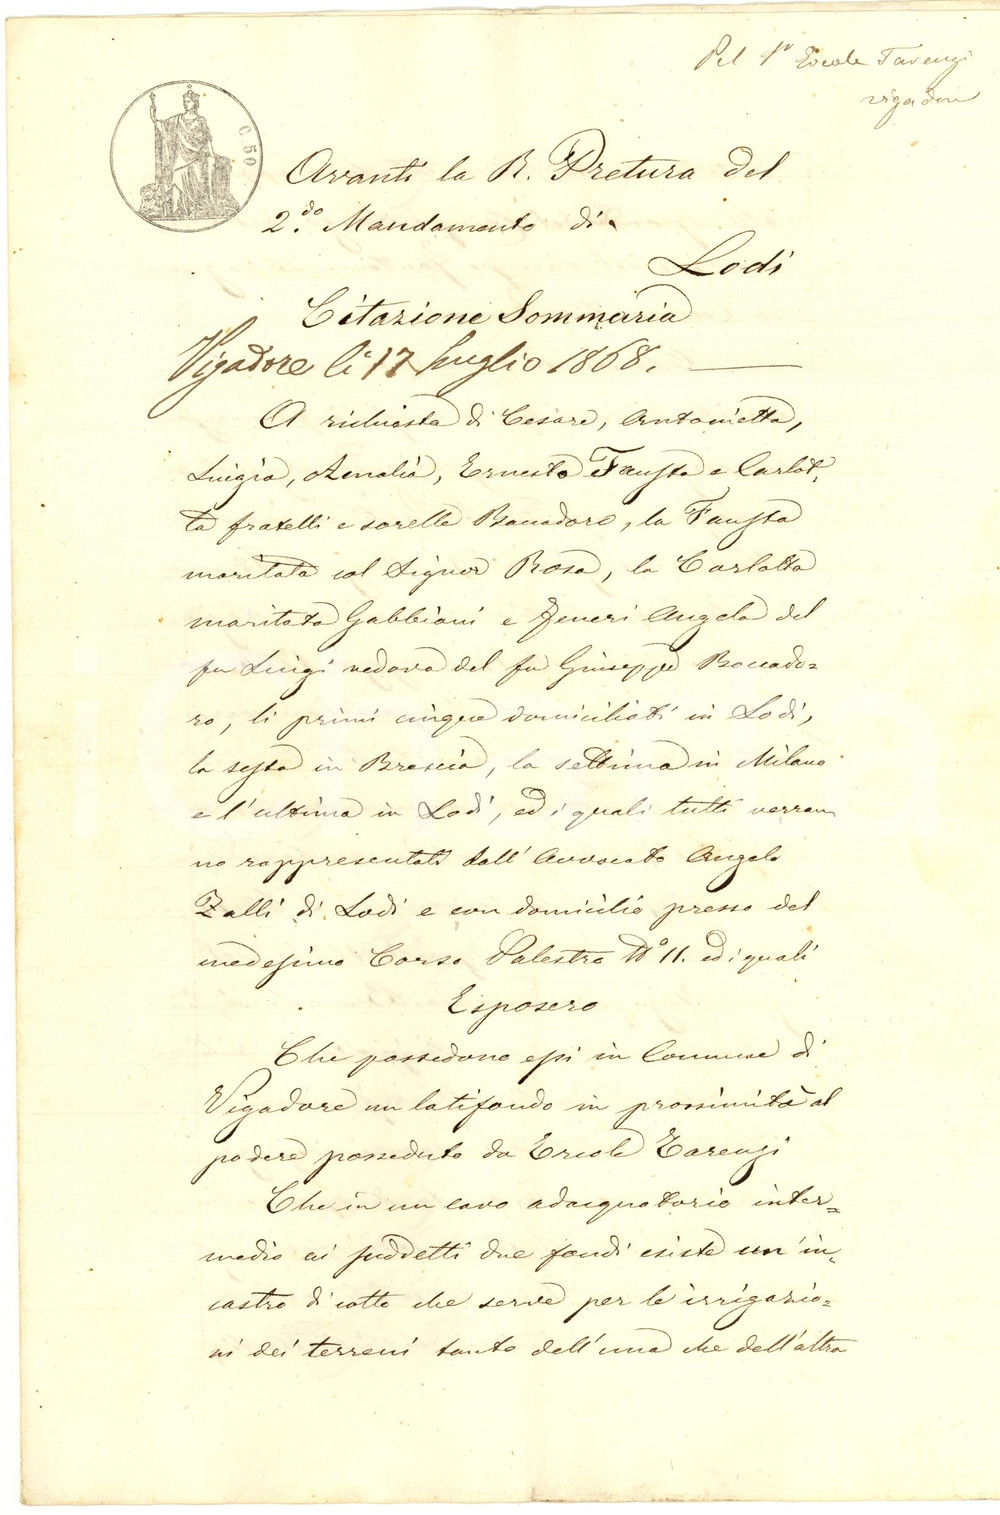 Pel Sr Ercole Tarenzi
Vigadore
C. 50
Avanti la R. Pretura del
2.do Mandamento di
Lodi
Citazione Sommaria
Vigadore li 17 Luglio 1868.
A richiesta di Cesare, Antonietta,
Luigia, Amalia, Ernesta Fausta e Carlot,
ta fratelli e sorelle Boccadoro, la Fausta
maritata col Signor Rosa, la Carlotta
maritata Gabbiani e Zeneri Angela del
fu Luigi vedova del fu Giuseppe Boccado=
ro, li primi cinque domiciliati in Lodi,
la sesta in Brescia, la settima in Milano
e l'ultima in Lodi, ed i quali tutti verran
no rappresentati dall'Avvocato Angelo
Zalli di Lodi e con domicilio presso del
medesimo Corso Palestro No 11. ed i quali
Esposero
Che possedono essi in Comune di
Vigadore un latifondo in prossimità al
podere posseduto da Ercole Tarenzi
Che in un cavo adacquatorio inter=
medio ai suddetti due fondi esiste un'in=
castro di cotto che serve per le irrigazio=
ni dei terreni tanto dell'una che dell'altra